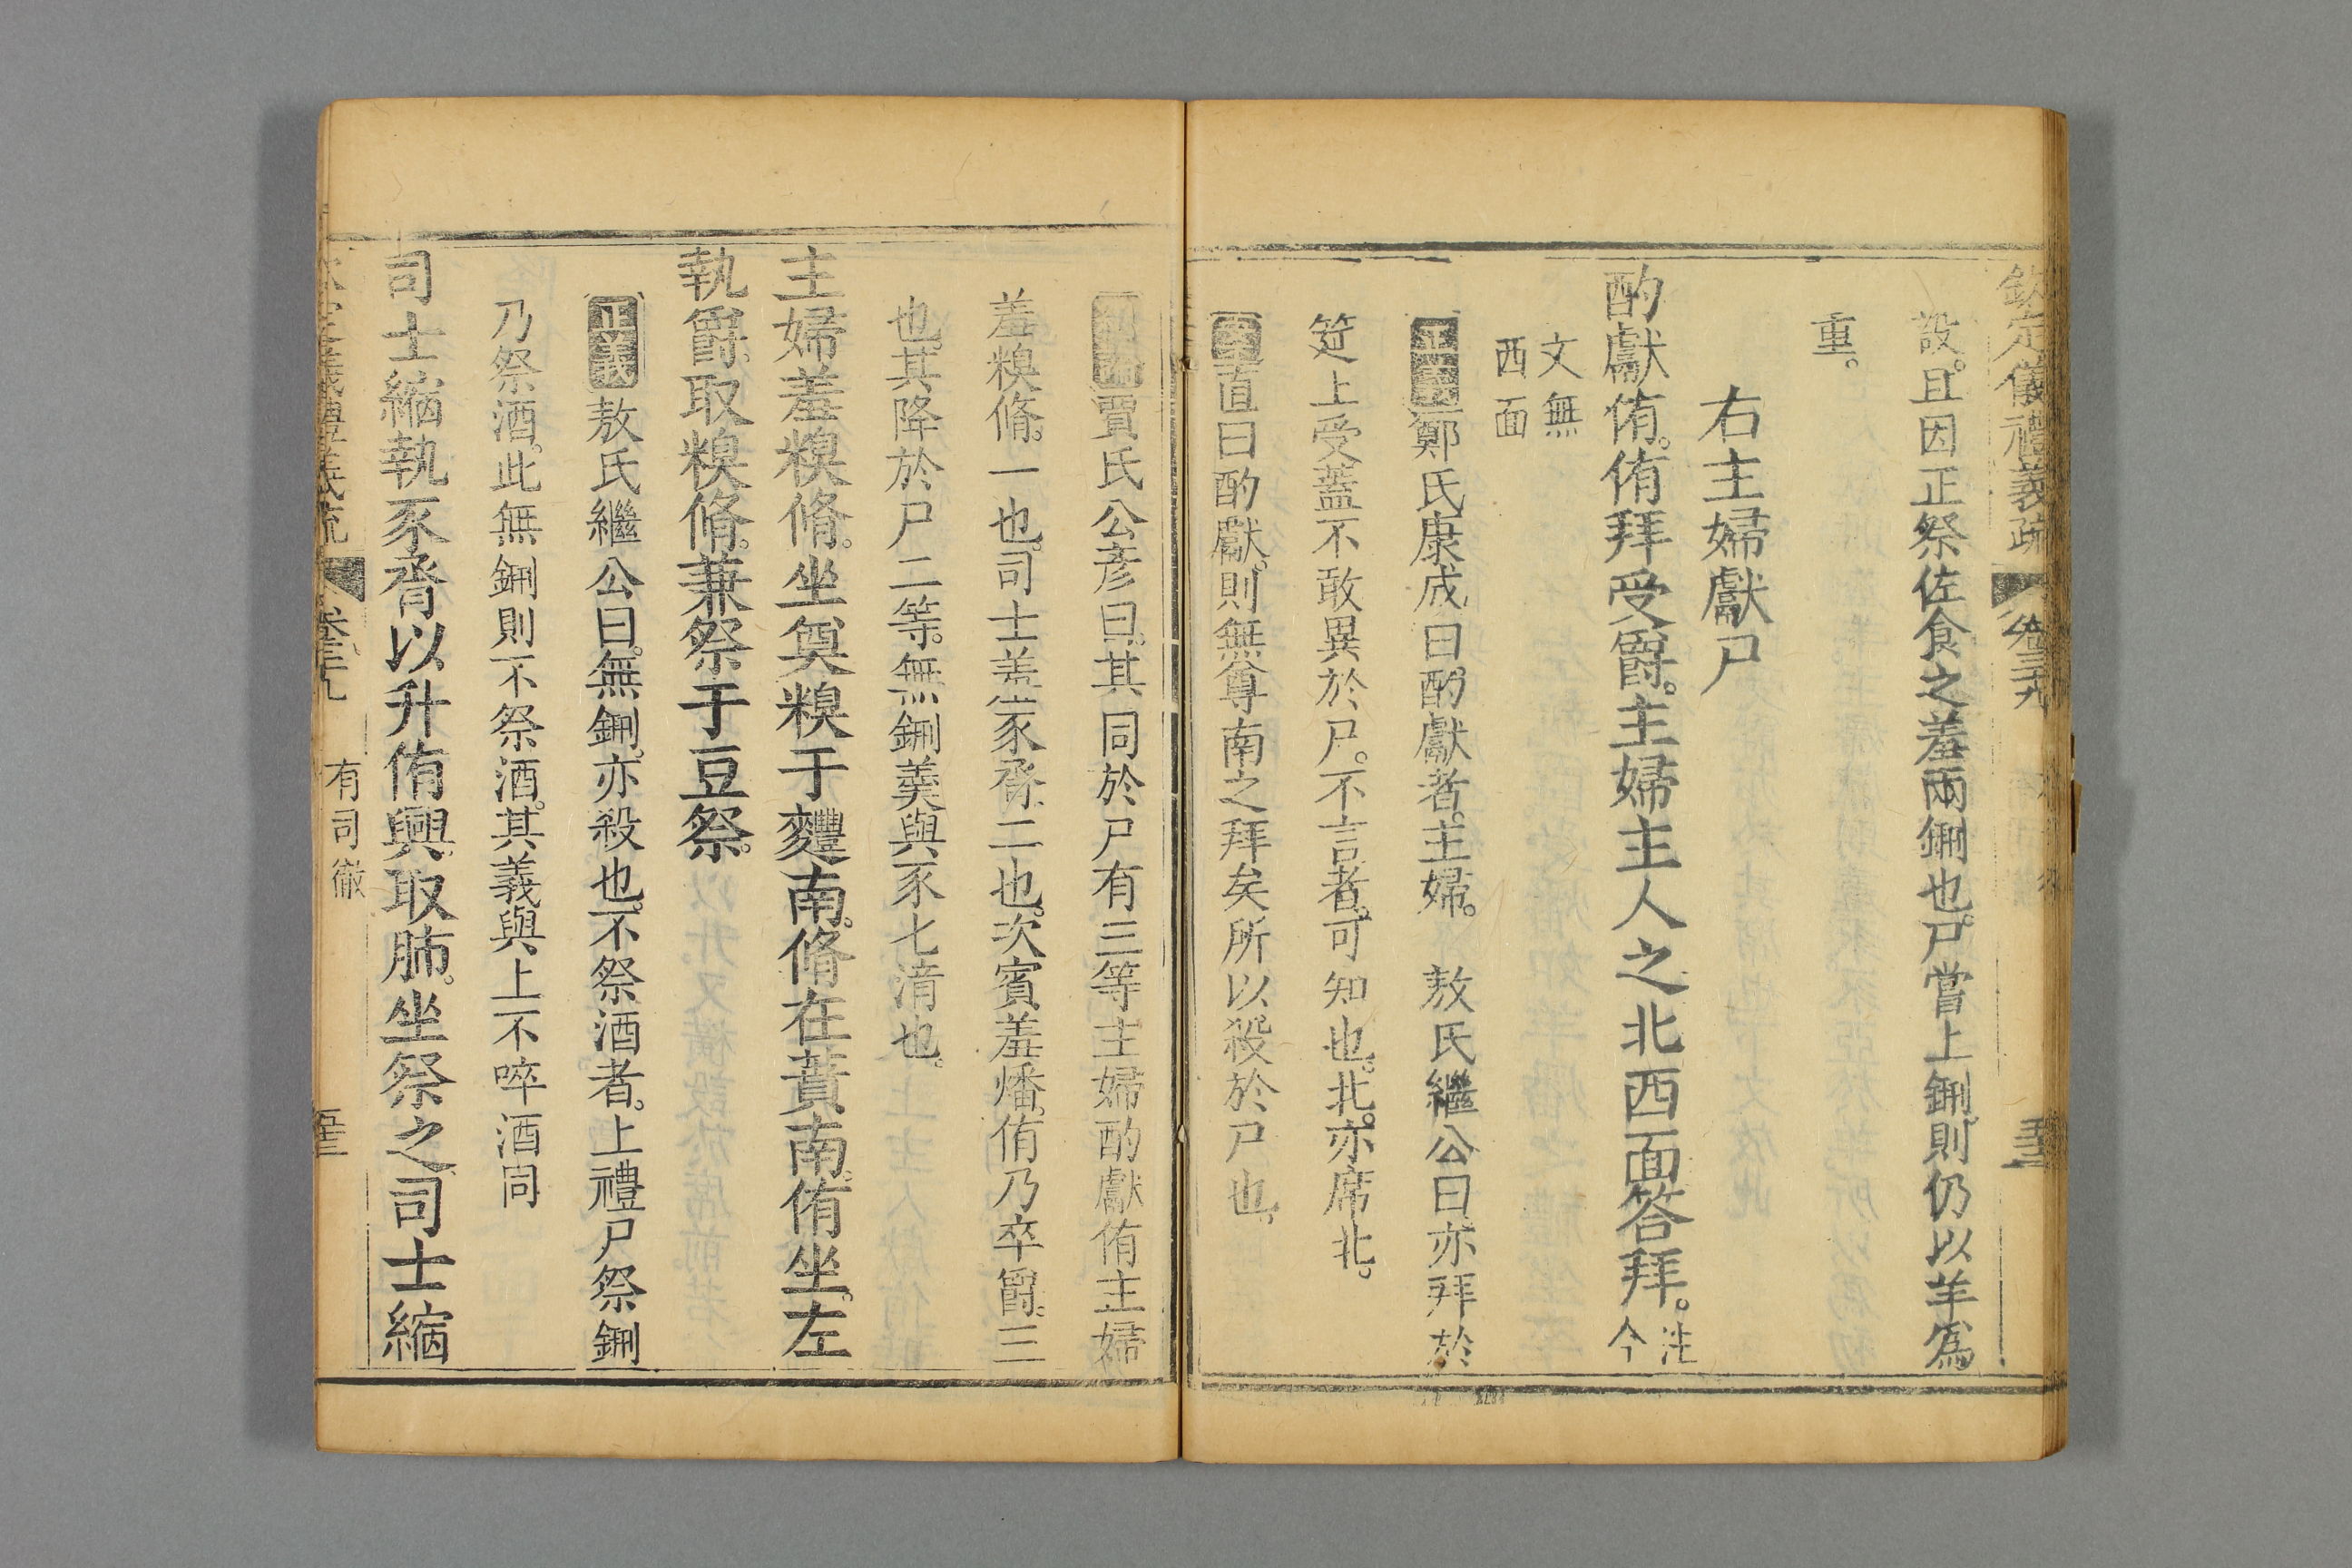 欽定儀禮義疏 卷三十九
設。且因正祭佐食之羞兩鉶也。尸嘗上鉶。則仍以羊爲
重。
右主婦獻尸
酌獻侑。侑拜受爵。主婦主人之北西面答拜。注今
文無
西面
正義鄭氏康成曰酌獻者。主婦。 敖氏繼公曰亦拜於
筵上受蓋不敢異於尸。不言者。可知也。北。亦席北。
直曰酌獻。則無尊南之拜矣所以殺於尸也。
賈氏公彥曰。其同於尸有三等主婦酌獻侑主婦
羞糗脩。一也。司士羞豕脀二也。次賓羞燔。侑乃卒爵。三
也。其降於尸二等。無鉶羹與豕匕湆也。
主婦羞糗脩。坐奠糗于麷南。脩在蕡南。侑坐。左
執爵。取糗脩。兼祭于豆祭。
正義敖氏繼公曰。無鉶。亦殺也。不祭酒者。上禮尸祭鉶
乃祭酒。此無鉶則不祭酒。其義與上不啐酒同
司士縮執豕脀以升侑興取肺。坐祭之司士縮
有司徹